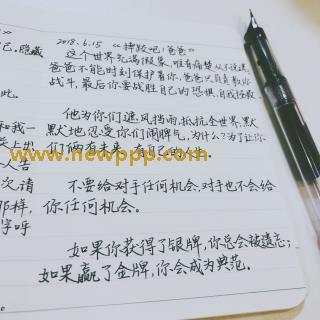 2018.6.15 《摔跤吧!爸爸》
这个世界充满假象,唯有痛楚从不说谎。
爸爸不能时刻保护着你,爸爸只负责教你
战斗,最后你要战胜自己的恐惧,自我拯救。
他为你们遮风挡雨,抵抗全世界,默
默地忍受你们闹脾气,为什么?为了让你
们俩有未来,有自己的人生。
www.newppp.com
不要给对手任何机会,对手也不会给
你任何机会。
如果你获得了银牌,你总会被遗忘;
如果赢了金牌,你会成为典范。
己.隐藏
此
和我一
类上出
人答
次清
那样,
字呼